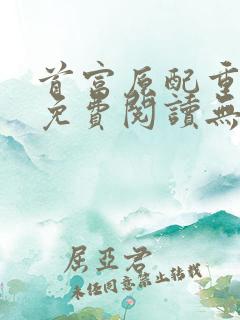 首富原配重
免費閱讀無
屈亞君
未经同意禁止转载